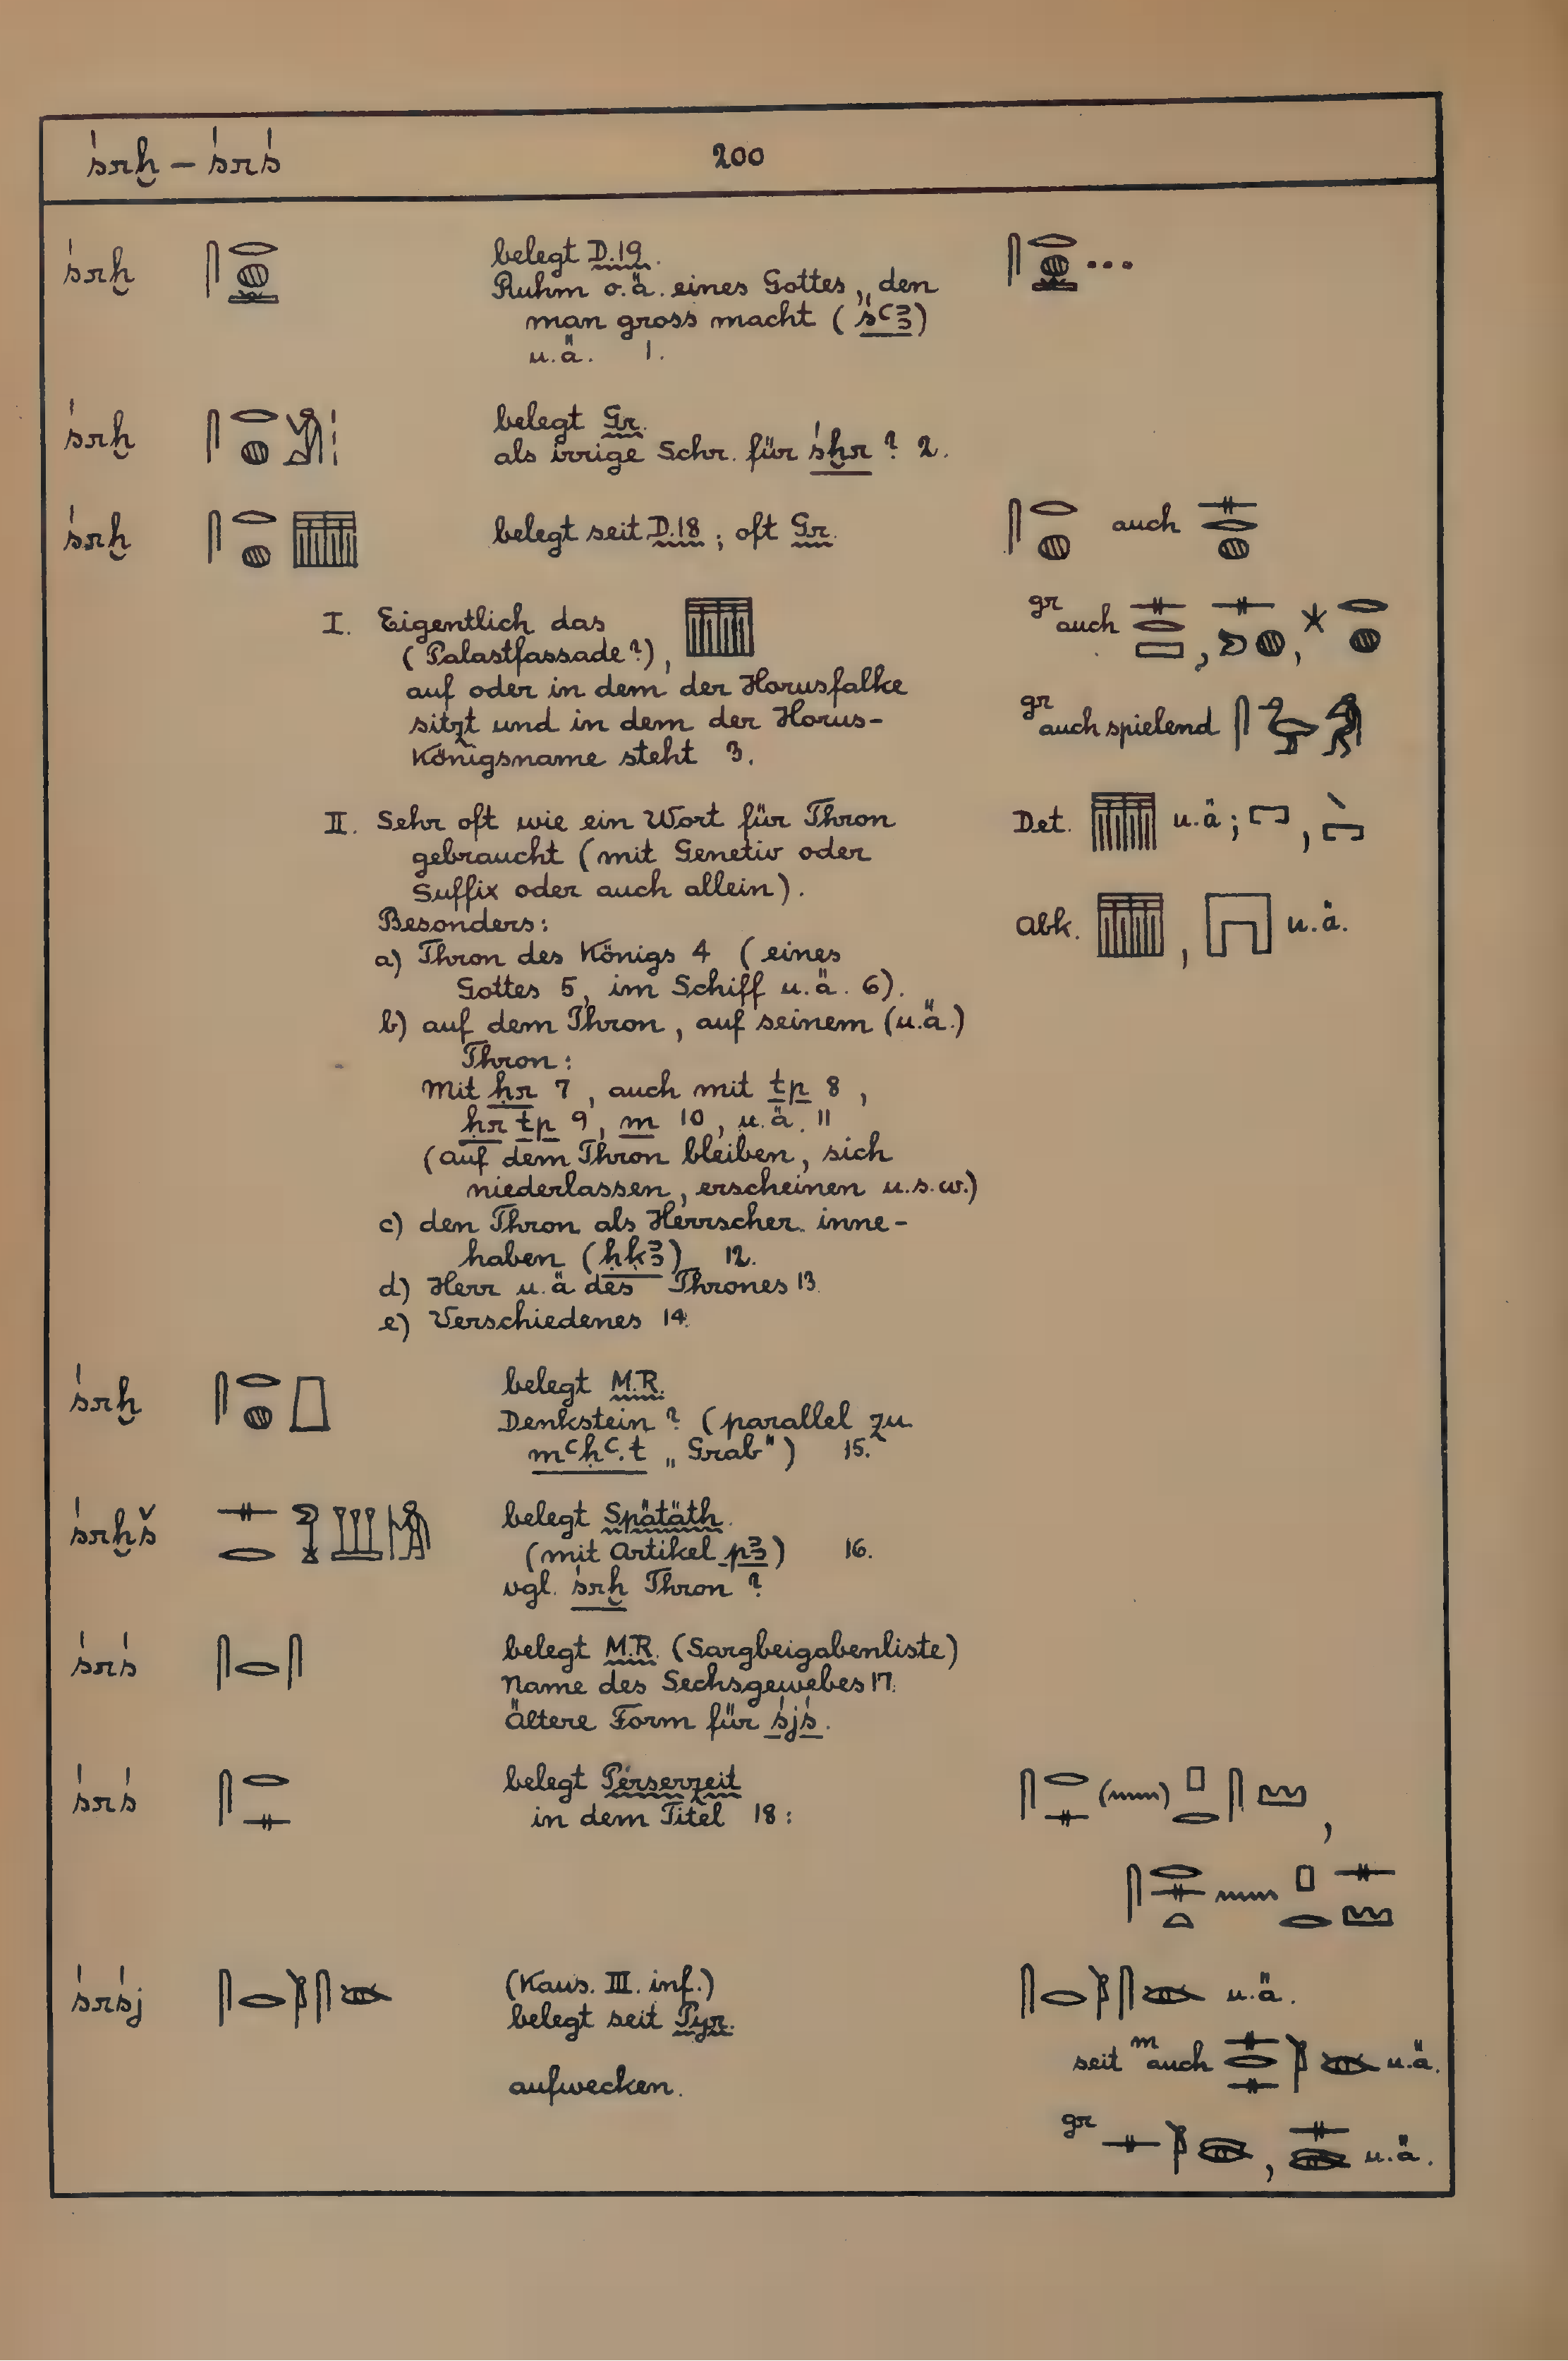 śrḫ – śrś 200
śrḫ belegt D.19.
Ruhm o.ä. eines Gottes, den
man gross macht (śꜥꜣ)
u.ä. 1.
śrḫ belegt Gr.
als irrige Schr. für śḫr ? 2.
śrḫ belegt seit D.18; oft Gr. auch
I. Eigentlich das
(Palastfassade?),
auf oder in dem der Horusfalke
sitzt und in dem der Horus-
Königsname steht 3.
gr auch , ,
gr auch spielend
II. Sehr oft wie ein Wort für Thron
gebraucht (mit Genetiv oder
Suffix oder auch allein).
Besonders:
a) Thron des Königs 4 (eines
Gottes 5, im Schiff u.ä. 6).
b) auf dem Thron, auf seinem (u.ä.)
Thron:
Mit ḥr 7, auch mit tp 8,
ḥr tp 9, m 10, u.ä. 11
(auf dem Thron bleiben, sich
niederlassen, erscheinen u.s.w.)
c) den Thron als Herrscher inne-
haben (ḥḳꜣ) 12.
d) Herr u.ä des Thrones 13.
e) Verschiedenes 14.
Det. u.ä; ,
Abk. , u.ä.
śrḫ belegt M.R.
Denkstein ? (parallel zu
mꜥḥꜥ.t „Grab") 15.
śrḫš belegt Spätäth.
(mit Artikel pꜣ) 16.
vgl. śrḫ Thron ?
śrś belegt M.R. (Sargbeigabenliste)
Name des Sechsgewebes 17.
ältere Form für śjś.
śrś belegt Perserzeit
in dem Titel 18:
śrśj (Kaus. III. inf.)
belegt seit Pyr.
aufwecken.
u.ä.
seit m auch u.ä.
gr , u.ä.